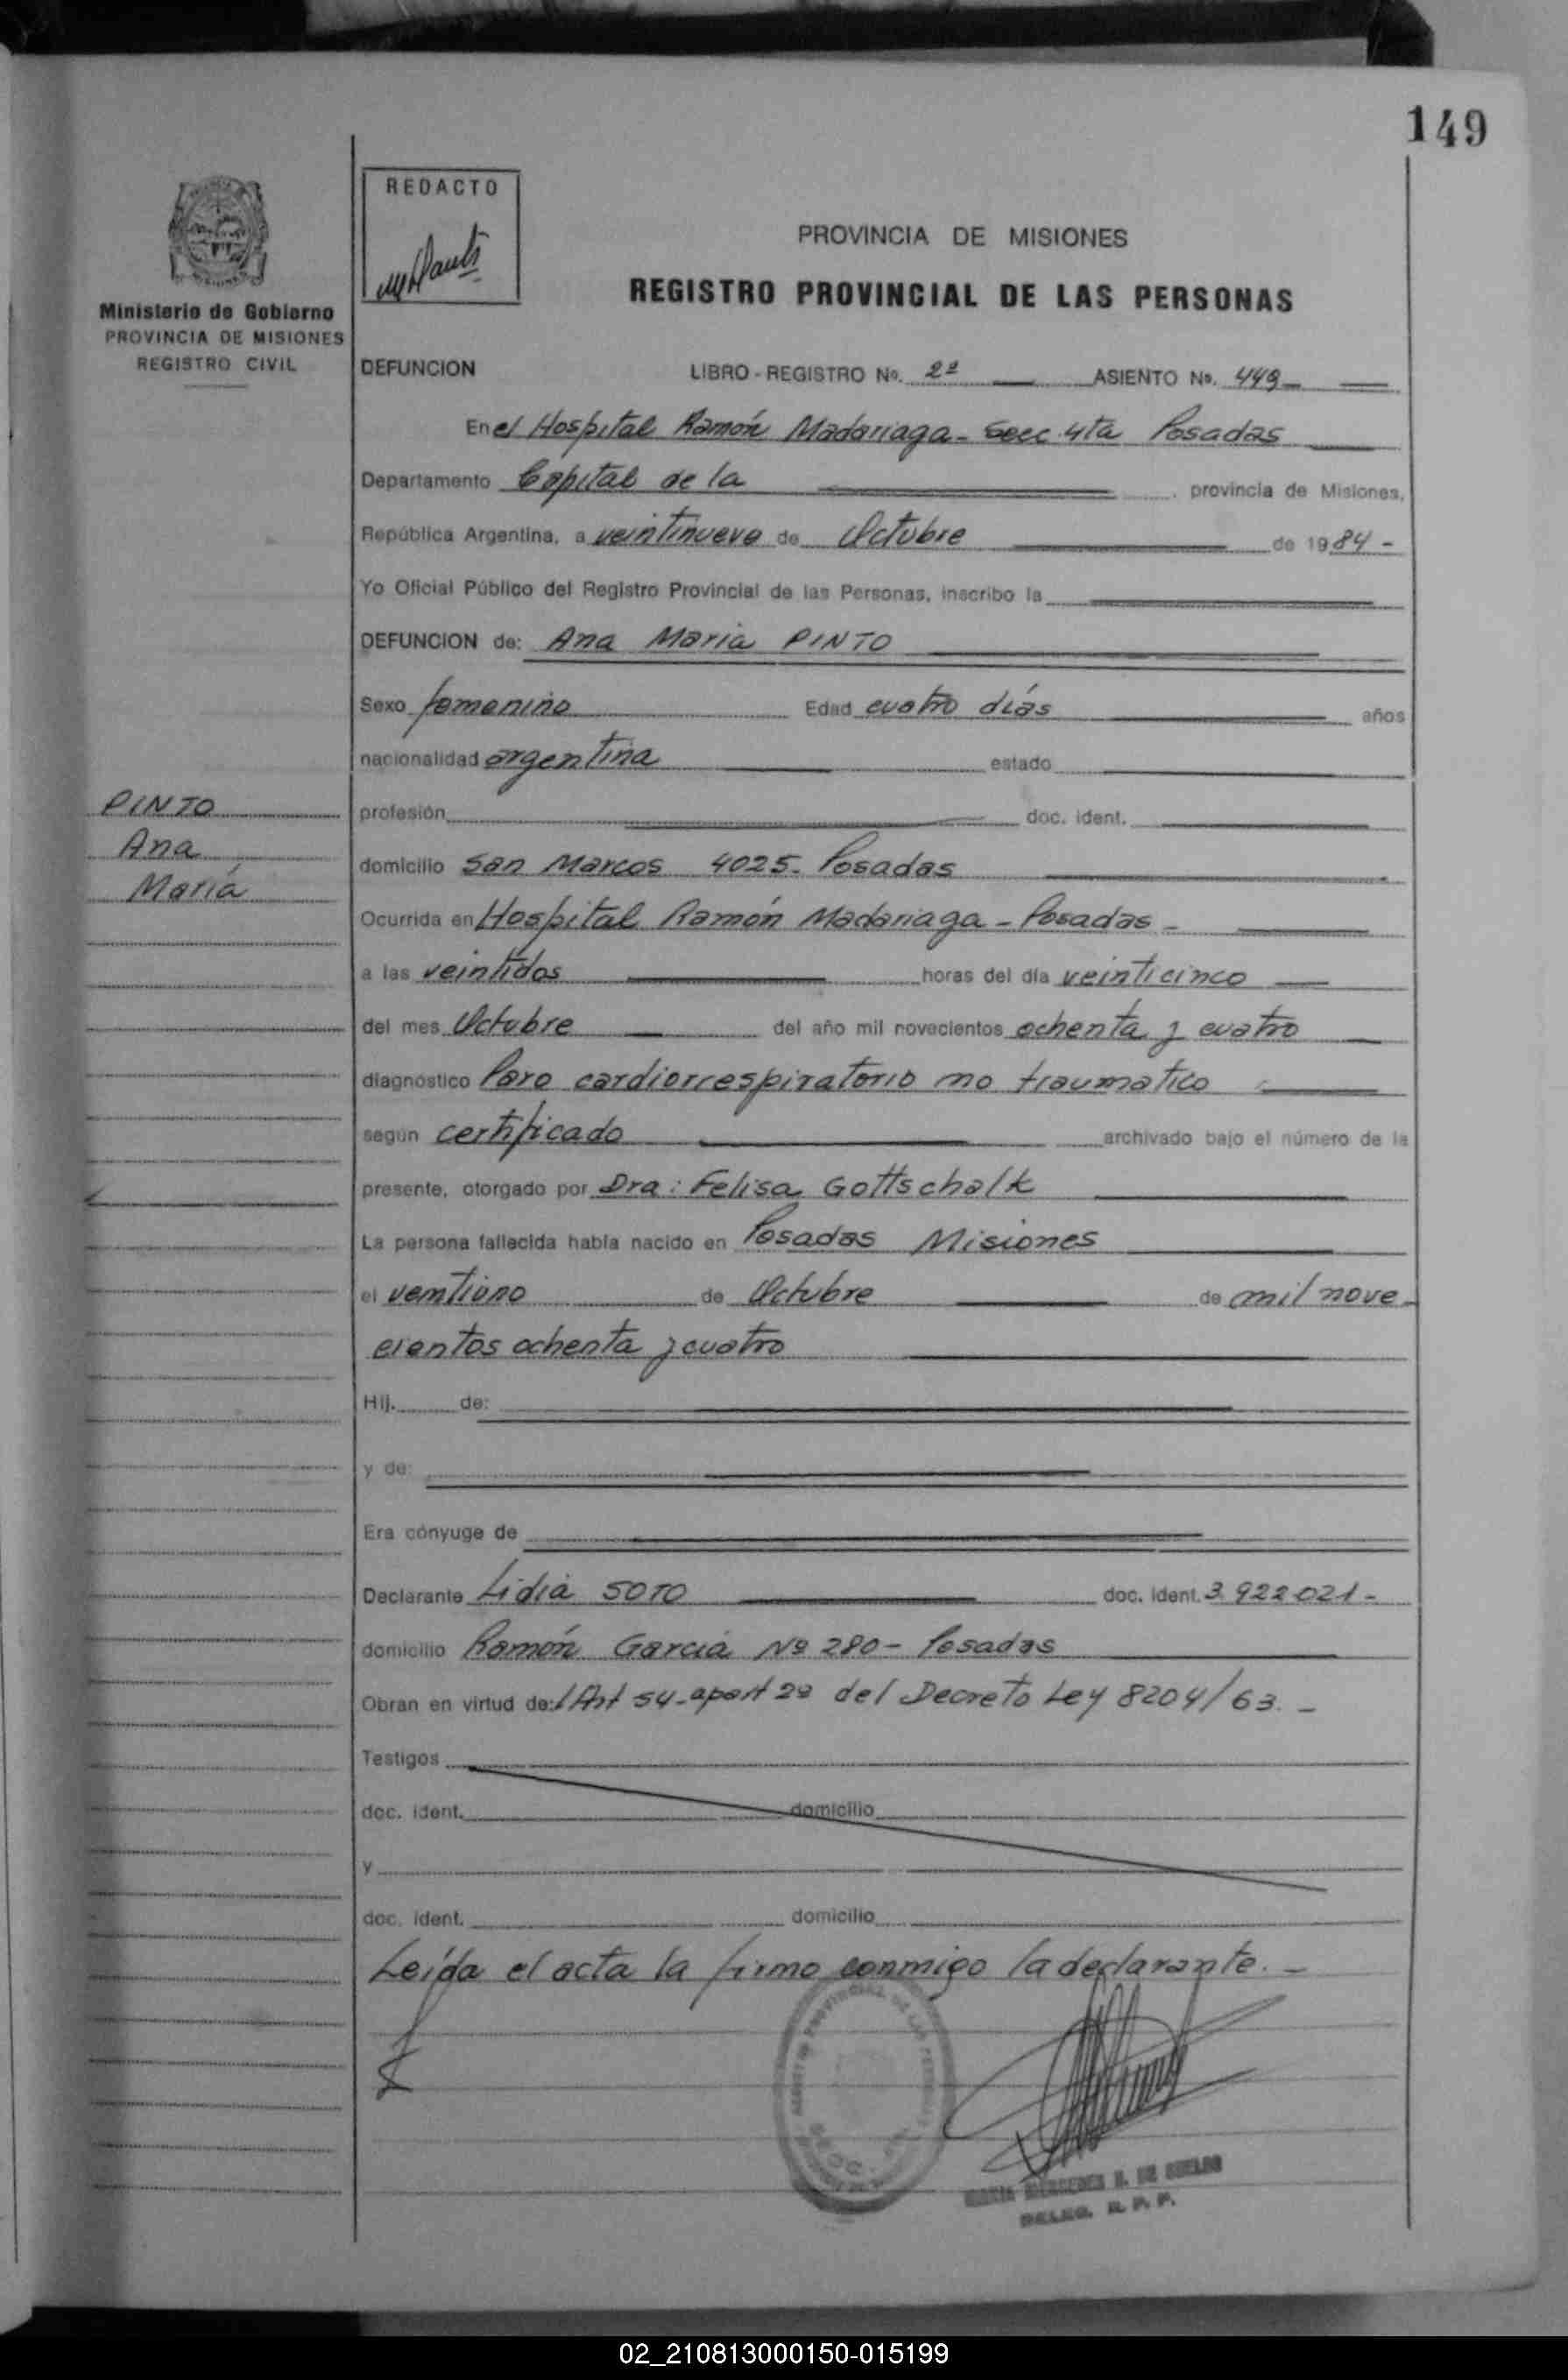 149
REDACTO
Ministerio de Gobierno
PROVINCIA DE MISIONES
REGISTRO CIVIL
PROVINCIA DE MISIONES
REGISTRO PROVINCIAL DE LAS PERSONAS
DEFUNCION LIBRO - REGISTRO No. 2º ASIENTO No. 449
En el Hospital Ramón Madariaga - Secc. 4ta Posadas
Departamento Capital de la provincia de Misiones,
República Argentina, a veintinueve de Octubre de 1984 -
Yo Oficial Público del Registro Provincial de las Personas, inscribo la
DEFUNCION de: Ana Maria PINTO
Sexo femenino Edad cuatro días años
nacionalidad argentina estado
PINTO
Ana
María
profesión doc. ident.
domicilio San Marcos 4025. Posadas
Ocurrida en Hospital Ramón Madariaga - Posadas -
a las veintidos horas del día veinticinco
del mes Octubre del año mil novecientos ochenta y cuatro
diagnóstico Paro cardiorrespiratorio no traumatico
según certificado archivado bajo el número de la
presente, otorgado por Dra: Felisa Gottschalk
La persona fallecida había nacido en Posadas Misiones
el ventiuno de Octubre de mil nove
cientos ochenta y cuatro
Hij. de:
y de:
Era cónyuge de
Declarante Lidia SOTO doc. ident. 3.922.021-
domicilio Ramón García Nº 280- Posadas
Obran en virtud de: Art 54- apart 2º del Decreto Ley 8204/63. -
Testigos
doc. ident. domicilio
y
doc. ident. domicilio
Leída el acta la firmo conmigo la declarante. -
DELEG. R. P. P.
02_210813000150-015199